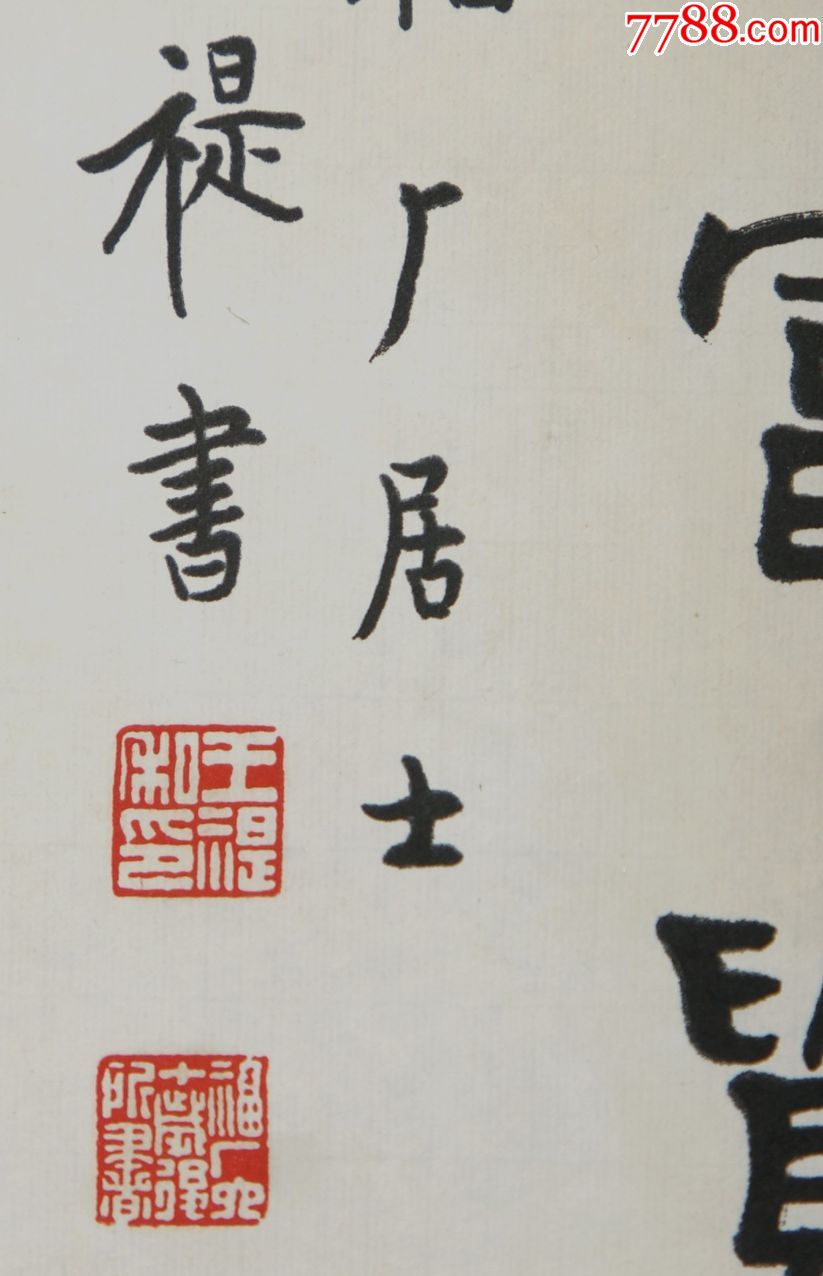 7788.com
厂居士
禔書
王禔
私印
福厂六
十歲後
所書